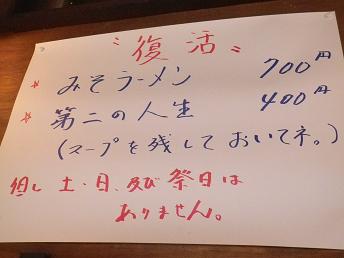 〃復活〃
☆ みそラーメン 700円
☆ 第二の人生 400円
(スープを残しておいてネ。)
但し 土・日、及び祭日は
ありません。